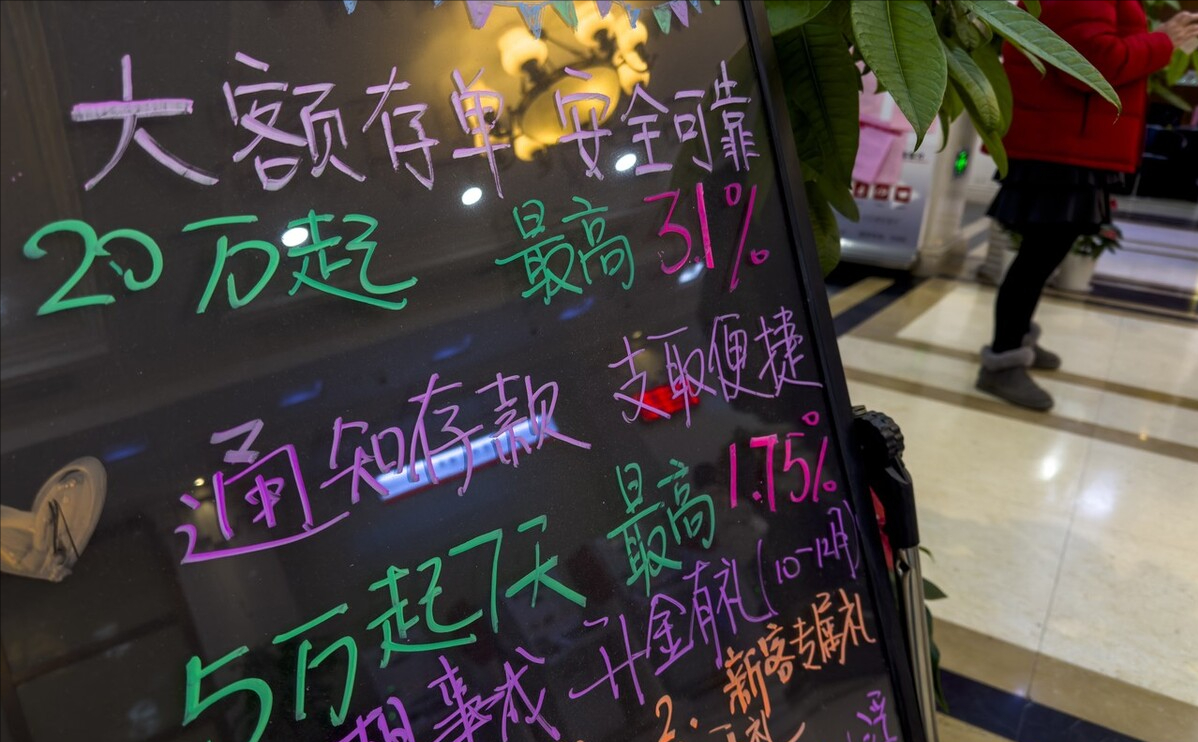 大额存单 安全可靠
20万起 最高3.1%
通知存款 支取便捷
5万起7天 最高1.75%
想事成 升金有礼(10-12月)
2.新客专属礼
礼